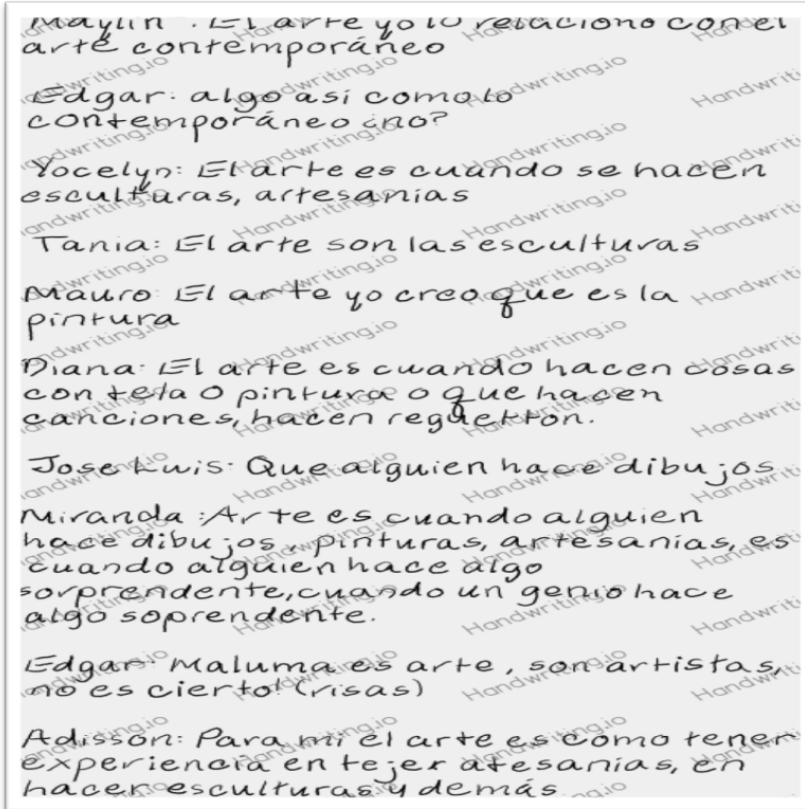 Maylin : El arte yo lo relaciono con el
arte contemporáneo
Edgar: algo asi como lo
contemporáneo ¿no?
Yocelyn: El arte es cuando se hacen
esculturas, artesanías
Tania: El arte son las esculturas
Mauro: El arte yo creo que es la
pintura
Diana: El arte es cuando hacen cosas
con tela o pintura o que hacen
canciones, hacen reguetton.
Jose Luis: Que alguien hace dibujos
Miranda :Arte es cuando alguien
hace dibujos, pinturas, artesanías, es
cuando alguien hace algo
sorprendente, cuando un genio hace
algo soprendente.
Edgar: Maluma es arte, son artistas,
no es cierto! (risas)
Adisson: Para mi el arte es como tener
experiencia en tejer atesanías, en
hacer esculturas y demás
Handwriting.io